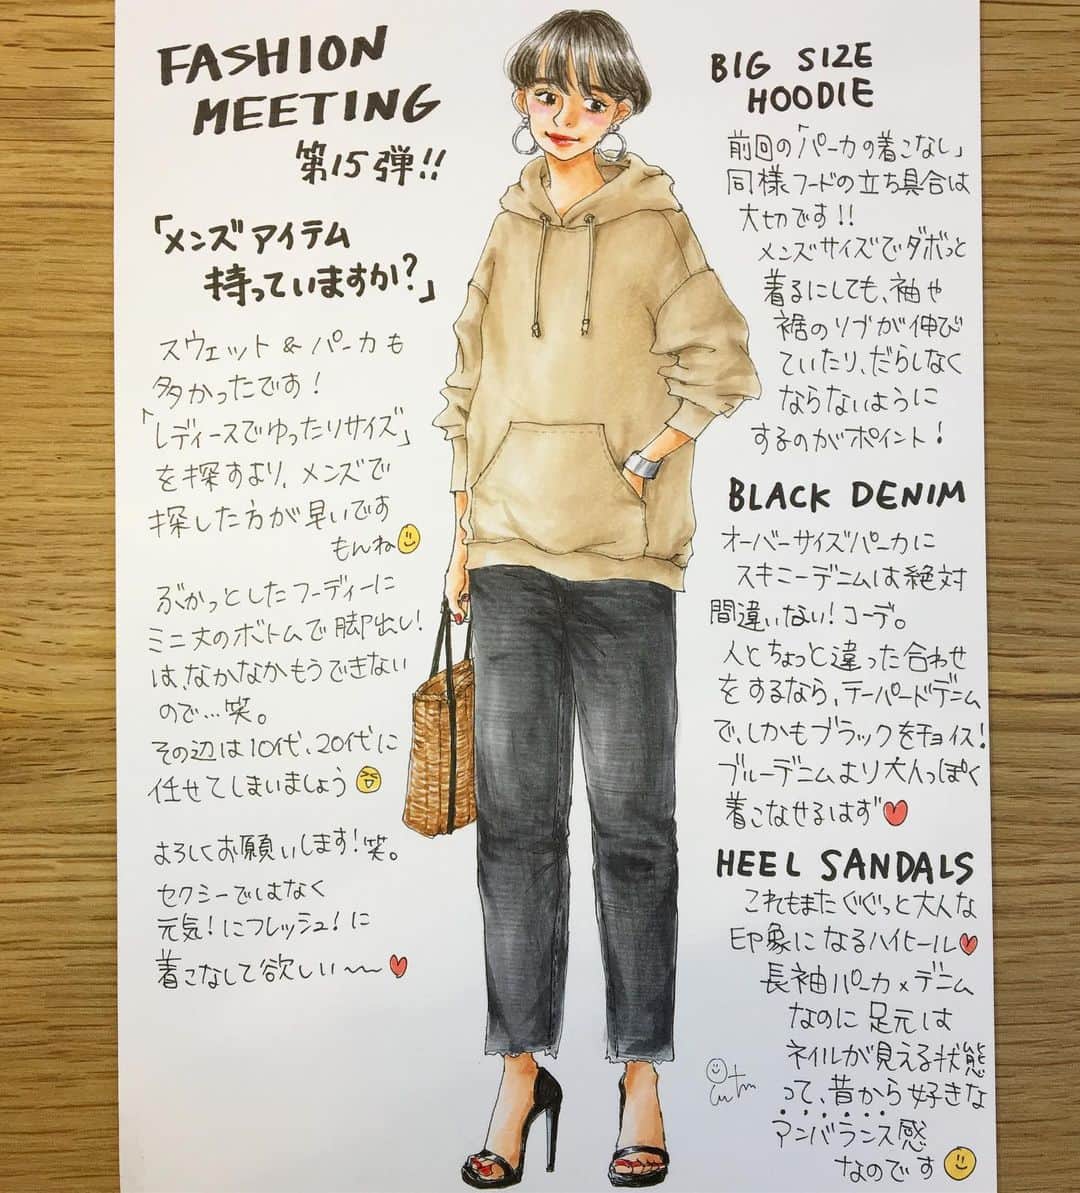 FASHION
MEETING
第15弾!!
「メンズアイテム
持っていますか?」
スウェット&パーカも
多かったです!
「レディースでゆったりサイズ」
を探すより、メンズで
探した方が早いです
もんね
ぶかっとしたフーディーに
ミニ丈のボトムで脚出し!
は、なかなかもうできない
ので…笑。
その辺は10代、20代に
任せてしまいましょう
よろしくお願いします!笑。
セクシーではなく
元気!にフレッシュ!に
着こなして欲しい〜
BIG SIZE
HOODIE
前回の「パーカの着こなし」
同様フードの立ち具合は
大切です!!
メンズサイズでダボっと
着るにしても、袖や
裾のリブが伸び
ていたり、だらしなく
ならないように
するのがポイント!
BLACK DENIM
オーバーサイズパーカに
スキニーデニムは絶対
間違いない!コーデ。
人とちょっと違った合わせ
をするなら、テーパードデニム
で、しかもブラックをチョイス!
ブルーデニムより大人っぽく
着こなせるはず
HEEL SANDALS
これもまたぐぐっと大人な
印象になるハイヒール
長袖パーカ×デニム
なのに足元は
ネイルが見える状態
って、昔から好きな
アンバランス感
なのです